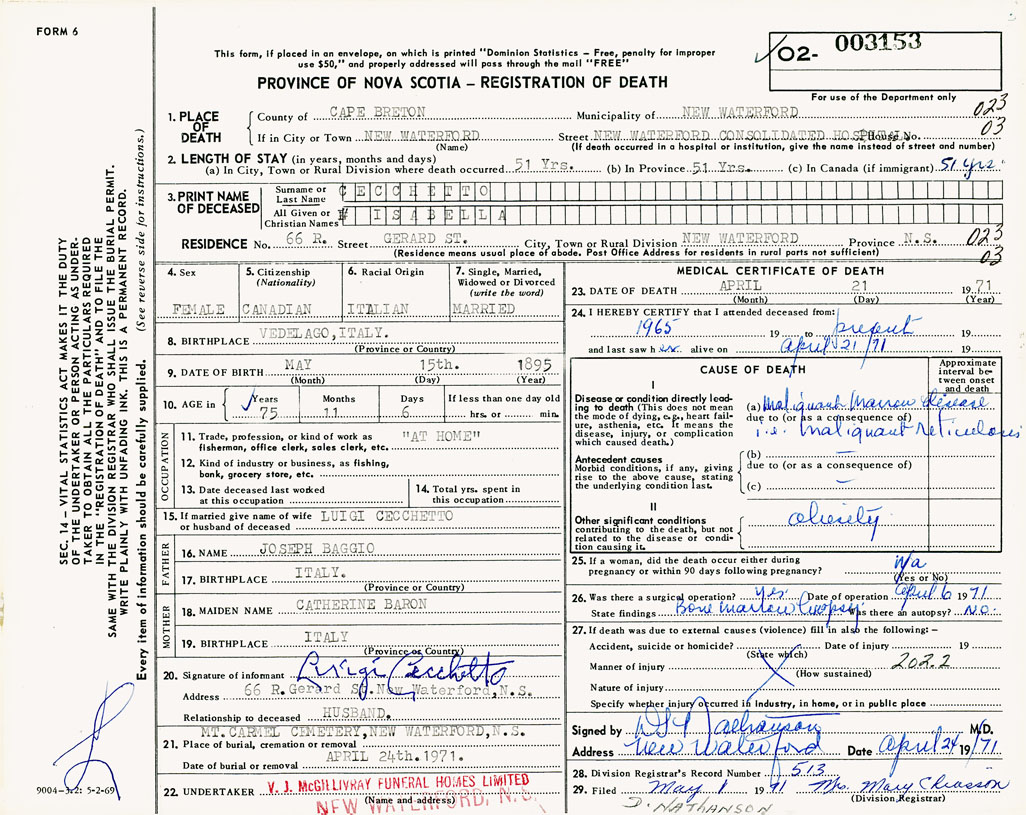 FORM 6
This form, if placed in an envelope, on which is printed "Dominion Statistics – Free, penalty for improper
use $50," and properly addressed will pass through the mail "FREE"
PROVINCE OF NOVA SCOTIA – REGISTRATION OF DEATH
O2- 003153
For use of the Department only
1. PLACE OF DEATH
County of CAPE BRETON Municipality of NEW WATERFORD 023
If in City or Town NEW WATERFORD Street NEW WATERFORD CONSOLIDATED House No. 03
(Name) (If death occurred in a hospital or institution, give the name instead of street and number)
2. LENGTH OF STAY (in years, months and days)
(a) In City, Town or Rural Division where death occurred 51 Yrs. (b) In Province 51 Yrs. (c) In Canada (if immigrant) 51 yrs.
3. PRINT NAME OF DECEASED
Surname or Last Name CECCHETTO
All Given or Christian Names ISABELLA
RESIDENCE No. 66 R. Street GERARD ST. City, Town or Rural Division NEW WATERFORD Province N.S. 023
(Residence means usual place of abode. Post Office Address for residents in rural parts not sufficient) 03
4. Sex 5. Citizenship (Nationality) 6. Racial Origin 7. Single, Married, Widowed or Divorced (write the word)
FEMALE CANADIAN ITALIAN MARRIED
8. BIRTHPLACE VEDELAGO, ITALY.
(Province or Country)
9. DATE OF BIRTH MAY 15th. 1895
(Month) (Day) (Year)
10. AGE in Years Months Days If less than one day old
75 11 6 hrs. or min.
OCCUPATION
11. Trade, profession, or kind of work as "AT HOME"
fishermon, office clerk, sales clerk, etc.
12. Kind of industry or business, as fishing,
bank, grocery store, etc.
13. Date deceased last worked
at this occupation
14. Total yrs. spent in
this occupation
15. If married give name of wife LUIGI CECCHETTO
or husband of deceased
FATHER
16. NAME JOSEPH BAGGIO
17. BIRTHPLACE ITALY.
(Province or Country)
MOTHER
18. MAIDEN NAME CATHERINE BARON
19. BIRTHPLACE ITALY
(Province or Country)
20. Signature of informant Luigi Cecchetto
Address 66 R. Gerard St. New Waterford, N.S.
Relationship to deceased HUSBAND.
MT. CARMEL CEMETERY, NEW WATERFORD, N.S.
21. Place of burial, cremation or removal
Date of burial or removal APRIL 24th. 1971.
22. UNDERTAKER V. J. McGILLIVRAY FUNERAL HOMES LIMITED
(Name and address)
NEW WATERFORD, N.S.
MEDICAL CERTIFICATE OF DEATH
23. DATE OF DEATH APRIL 21 1971
(Month) (Day) (Year)
24. I HEREBY CERTIFY that I attended deceased from:
1965 19 to present 19
and last saw her alive on April 21/71 19
CAUSE OF DEATH
Approximate interval between onset and death
I
Disease or condition directly leading to death (This does not mean the mode of dying, e.g., heart failure, asthenia, etc. It means the disease, injury, or complication which caused death.)
(a) Malignant Marrow disease
due to (or as a consequence of)
i.e. malignant reticulosis
Antecedent causes
Morbid conditions, if any, giving rise to the above cause, stating the underlying condition last.
(b) —
due to (or as a consequence of)
(c) —
II
Other significant conditions
contributing to the death, but not related to the disease or condition causing it.
obesity
25. If a woman, did the death occur either during
pregnancy or within 90 days following pregnancy? n/a
(Yes or No)
26. Was there a surgical operation? yes. Date of operation April 6 1971
State findings Bone marrow biopsy Was there an autopsy? NO.
27. If death was due to external causes (violence) fill in also the following: –
Accident, suicide or homicide? Date of injury 19
(State which)
Manner of injury 202.2
(How sustained)
Nature of injury
Specify whether injury occurred in industry, in home, or in public place
Signed by Nathanson M.D.
Address New Waterford Date April 24 19/71
28. Division Registrar's Record Number 513
29. Filed May 1 1971 Mrs. Mary Chiasson
(Division Registrar)
D. NATHANSON
SEC. 14 – VITAL STATISTICS ACT MAKES IT THE DUTY
OF THE UNDERTAKER OR PERSON ACTING AS UNDER-
TAKER TO OBTAIN ALL THE PARTICULARS REQUIRED
IN THE "REGISTRATION OF DEATH" AND TO FILE THE
SAME WITH THE DIVISION REGISTRAR WHO SHALL ISSUE THE BURIAL PERMIT.
WRITE PLAINLY WITH UNFADING INK. THIS IS A PERMANENT RECORD.
Every item of information should be carefully supplied. (See reverse side for instructions.)